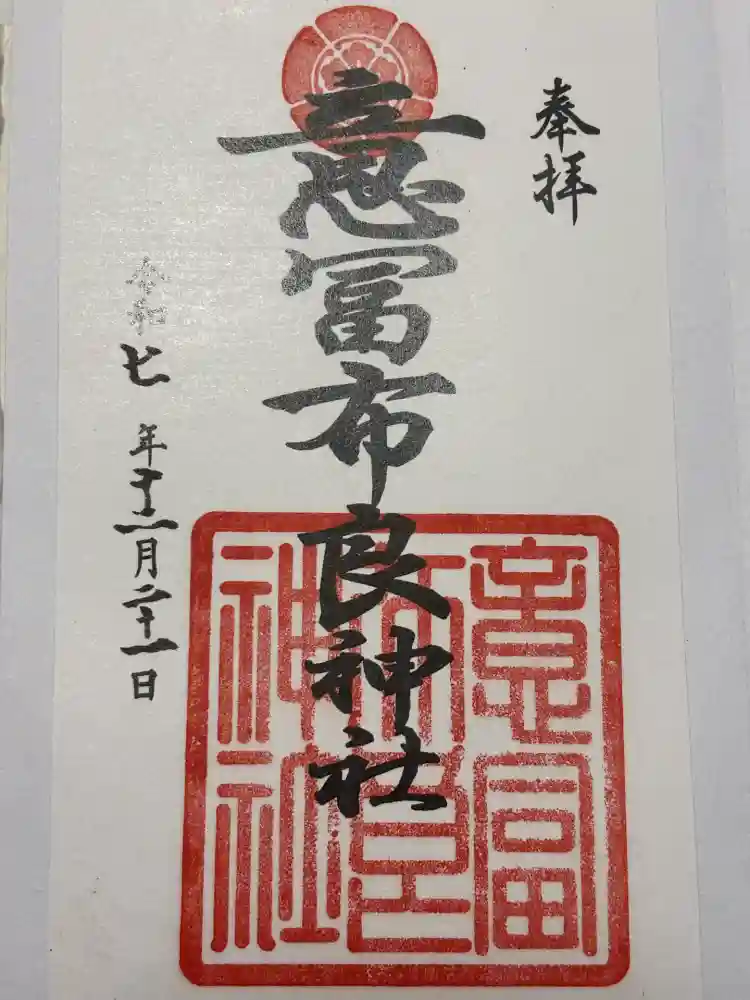 奉拝
意冨布良神社
令和七年十二月二十一日
意富
布良
神社